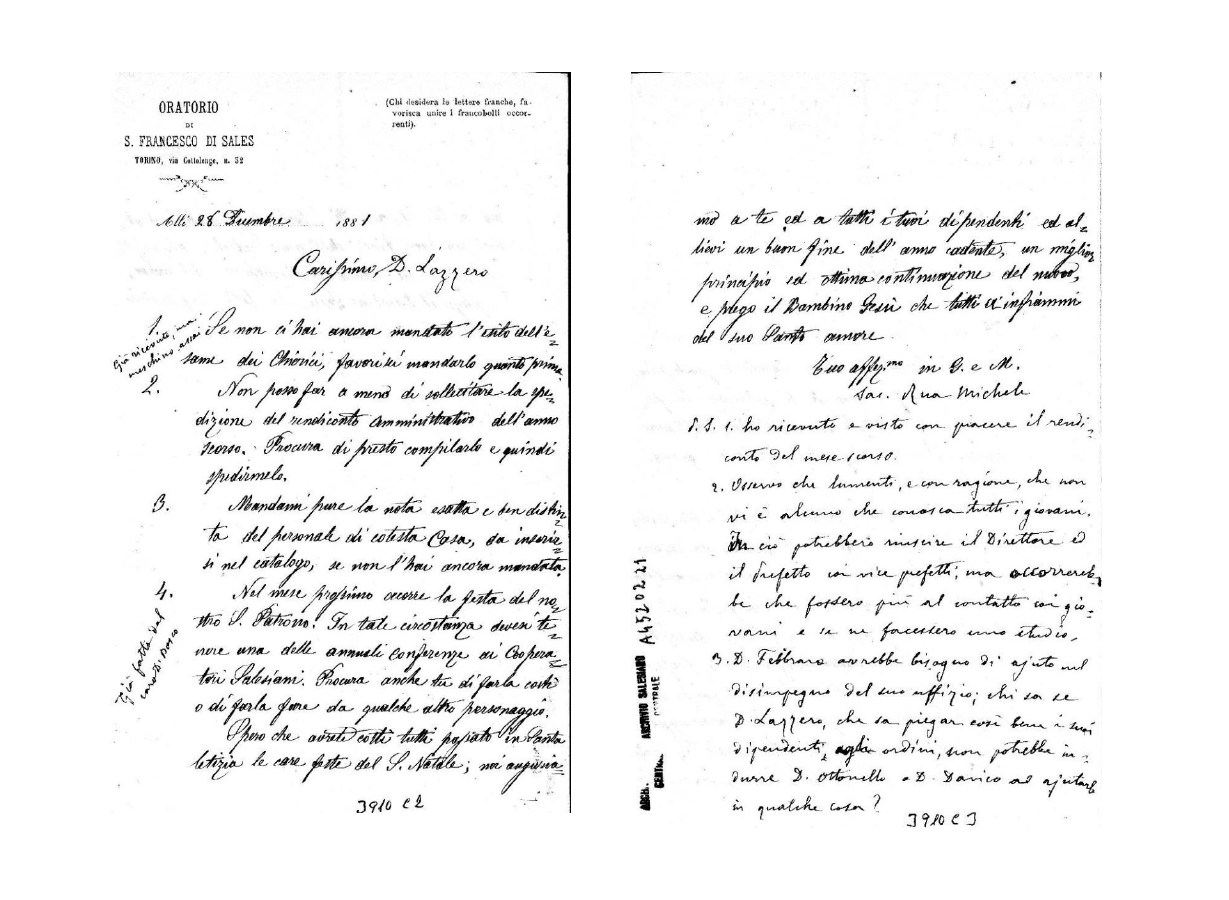 ORATORIO
DI
S. FRANCESCO DI SALES
TORINO, via Cottolengo, n. 32
(Chi desidera le lettere franche, fa-
vorisca unire i francobolli occor-
renti).
Alli 28 Dicembre 1881
Carissimo D. Lazzero
1. Se non ci hai ancora mandato l'esito dell'e=
same dei Chierici, favorisci mandarlo quanto prima.
Già ricevuto, ma
meschino assai
2. Non posso far a meno di sollecitare la spe=
dizione del rendiconto amministrativo dell'anno
scorso. Procura di presto compilarlo e quindi
spedirmelo.
3. Mandami pure la nota esatta e ben distin=
ta del personale di cotesta Casa, da inserir=
si nel catalogo, se non l'hai ancora mandata.
4. Nel mese prossimo occorre la festa del no=
stro S. Patrono. In tale circostanza devesi te=
nere una delle annuali conferenze ai Coopera=
tori Salesiani. Procura anche tu di farla costì
o di farla fare da qualche altro personaggio.
Già fatta dal
caro D. Bosco
Spero che avrete costì tutti passato in santa
letizia le care feste del S. Natale; noi auguria=
3910 C 2
mo a te ed a tutti i tuoi dipendenti ed al=
lievi un buon fine dell'anno cadente, un miglior
principio ed ottima continuazione del nuovo,
e prego il Bambino Gesù che tutti ci infiammi
del suo Santo amore.
Tuo affez.mo in G. e M.
Sac. Rua Michele
P.S. 1. ho ricevuto e visto con piacere il rendi-
conto del mese scorso.
2. Osservo che lamenti, e con ragione, che non
vi è alcuno che conosca tutti i giovani.
In ciò potrebbero riuscire il Direttore ed
il Prefetto coi vice prefetti, ma occorrereb-
be che fossero più al contatto coi gio-
vani e se ne facessero uno studio.
3. D. Febbraro avrebbe bisogno di ajuto nel
disimpegno del suo uffizio; chi sa se
D. Lazzero, che sa piegar così bene i suoi
dipendenti agli ordini, non potrebbe in-
durre D. Ottonello o D. Davico ad ajutarlo
in qualche cosa?
3910 C 3
A4520221
ARCHIVIO SALESIANO
CENTRALE